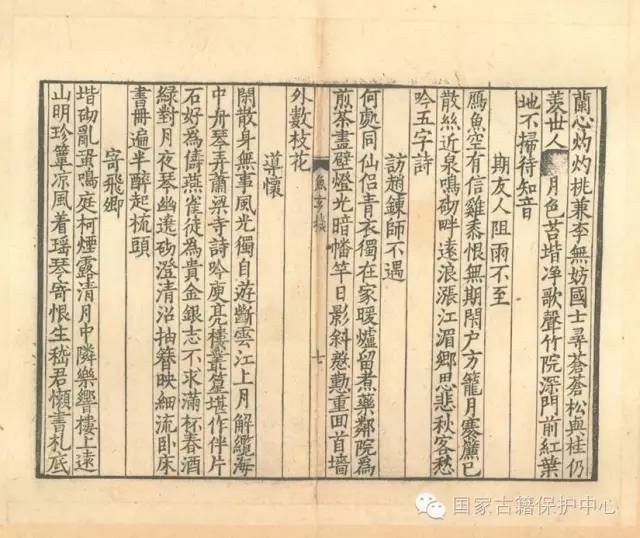 蘭心灼灼桃兼李無妨國士尋蒼蒼松與桂仍
羡世人月色苔堦净歌聲竹院深門前紅葉
地不掃待知音
期友人阻雨不至
鴈魚空有信雞黍恨無期閑户方籠月褰簾已
散絲近泉鳴砌畔遠浪漲江湄鄉思悲秋客愁
吟五字詩
訪趙鍊師不遇
何處同仙侣青衣獨在家暖爐留煮藥鄰院爲
煎茶畫壁燈光暗幡竿日影斜慇懃重回首墻
外數枝花
魚玄機 七
導懷
閑散身無事風光獨自遊斷雲江上月解纜海
中舟琴弄蕭梁寺詩吟庾亮樓叢篁堪作伴片
石好為儔燕雀徒為貴金銀志不求滿杯春酒
緑對月夜琴幽遶砌澄清沼抽簪映細流卧床
書冊遍半醉起梳頭
寄飛卿
堦砌亂蛩鳴庭柯煙露清月中隣樂響樓上遠
山明珍簟凉風着瑶琴寄恨生嵇君懶書札底
国家古籍保护中心